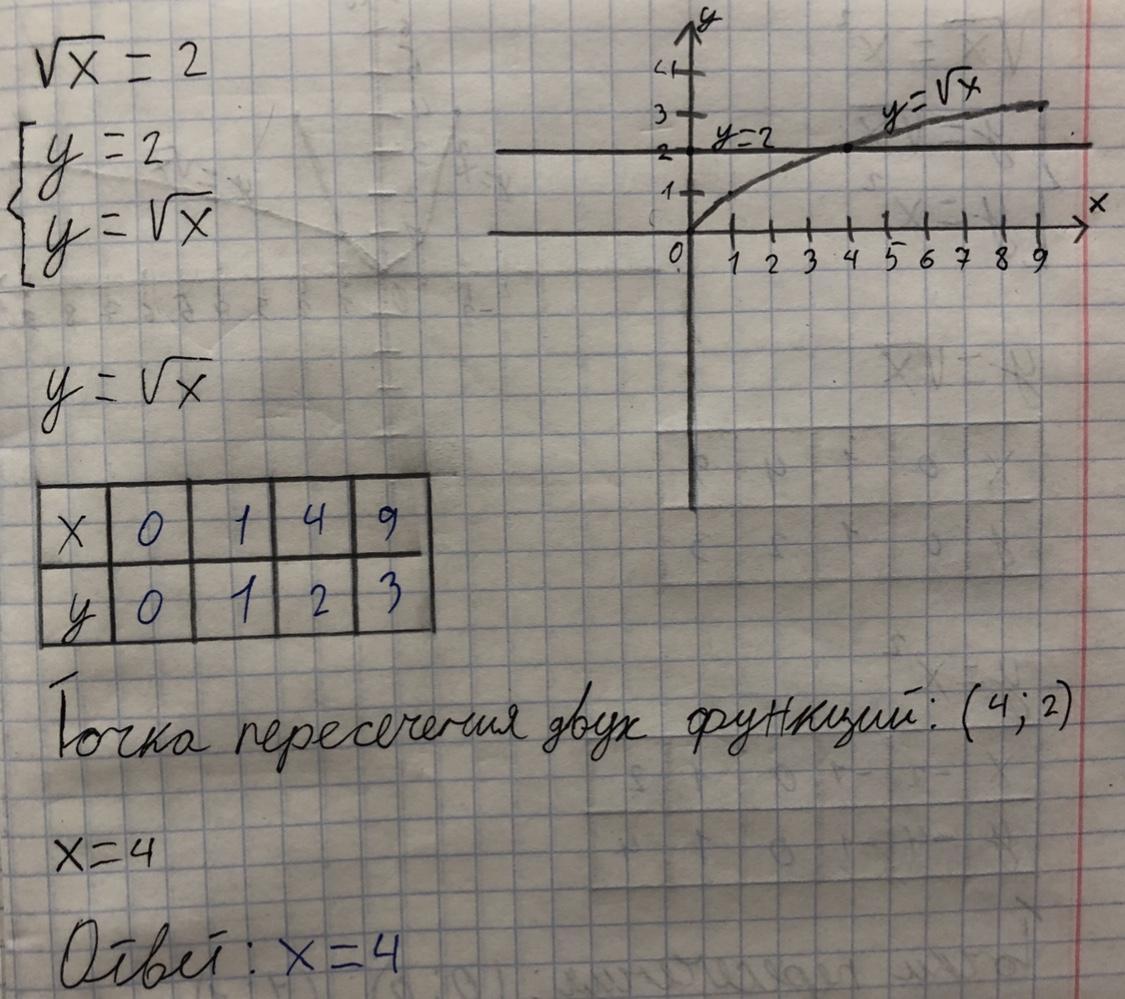 √x = 2
{ y = 2
y = √x
y = √x
x 0 1 4 9
y 0 1 2 3
y
4
3
2
1
y=2
y=√x
x
0 1 2 3 4 5 6 7 8 9
Точка пересечения двух функций: (4; 2)
x=4
Ответ: x=4